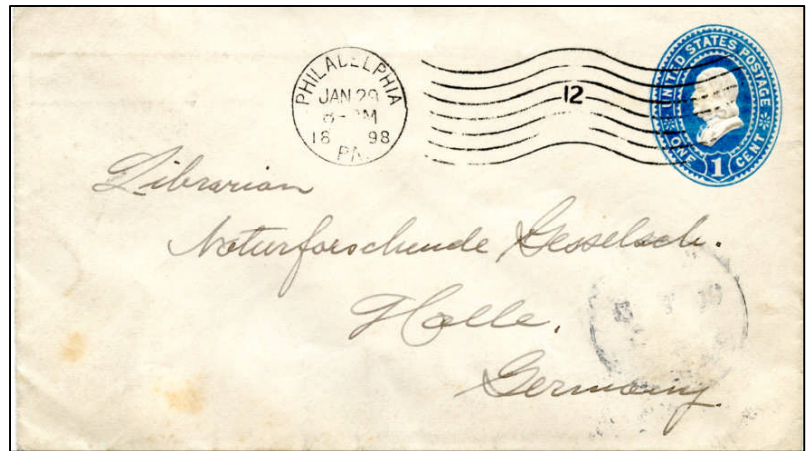 PHILADELPHIA
JAN 29
18 98
PA.
12
UNITED STATES POSTAGE
ONE 1 CENT
Librarian
Naturforschende Gesselsch.
Halle,
Germany